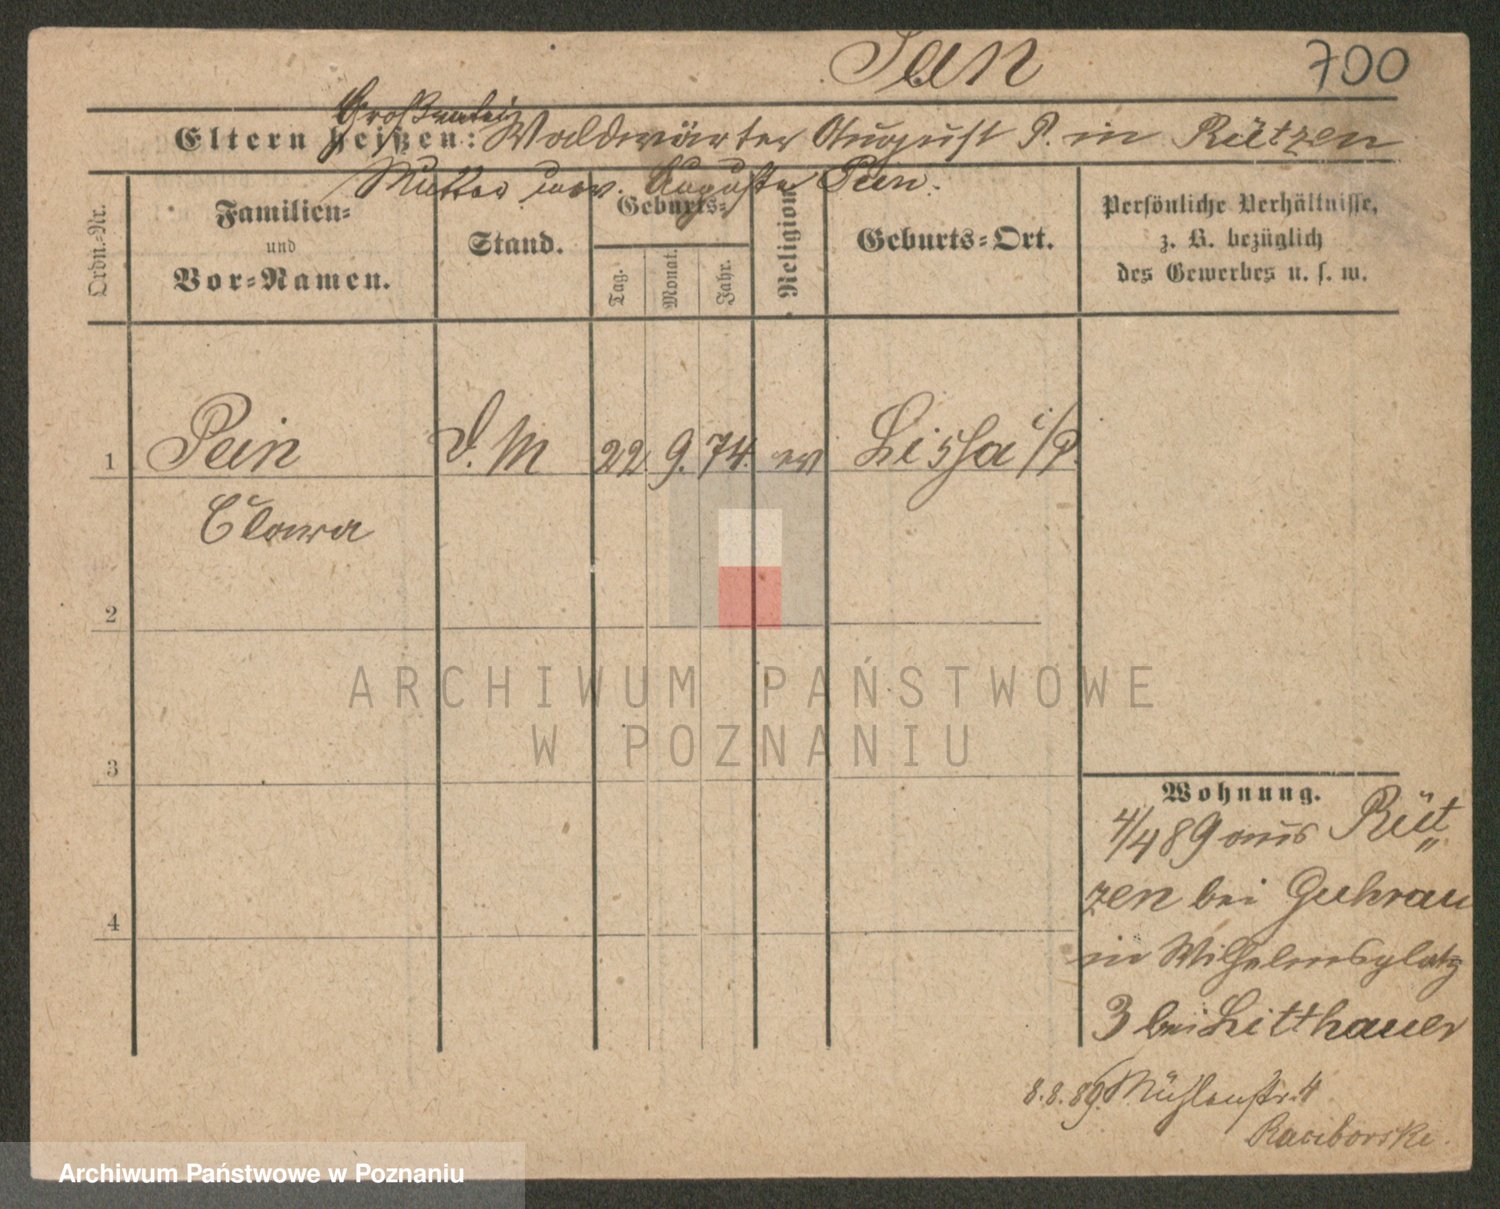 Pein
700
Großvater
Eltern heißen: Waldwärter August P. in Rützen
Mutter unv. Auguste Pein.
Ordn.-Nr.
Familien-
und
Vor-Namen.
Stand.
Geburts-
Tag.
Monat.
Jahr.
Religion.
Geburts-Ort.
Persönliche Verhältnisse,
z. B. bezüglich
des Gewerbes u. s. w.
1 Pein D. M 22. 9. 74. ev Lissa i/P.
Clara
2
3
4
Wohnung.
4/4 89 aus Rüt„
zen bei Guhrau
in Wilhelmsplatz
3 bei Litthauer
8.8.89. Mühlenstr. 4
Raciborski.
ARCHIWUM PAŃSTWOWE
W POZNANIU
Archiwum Państwowe w Poznaniu